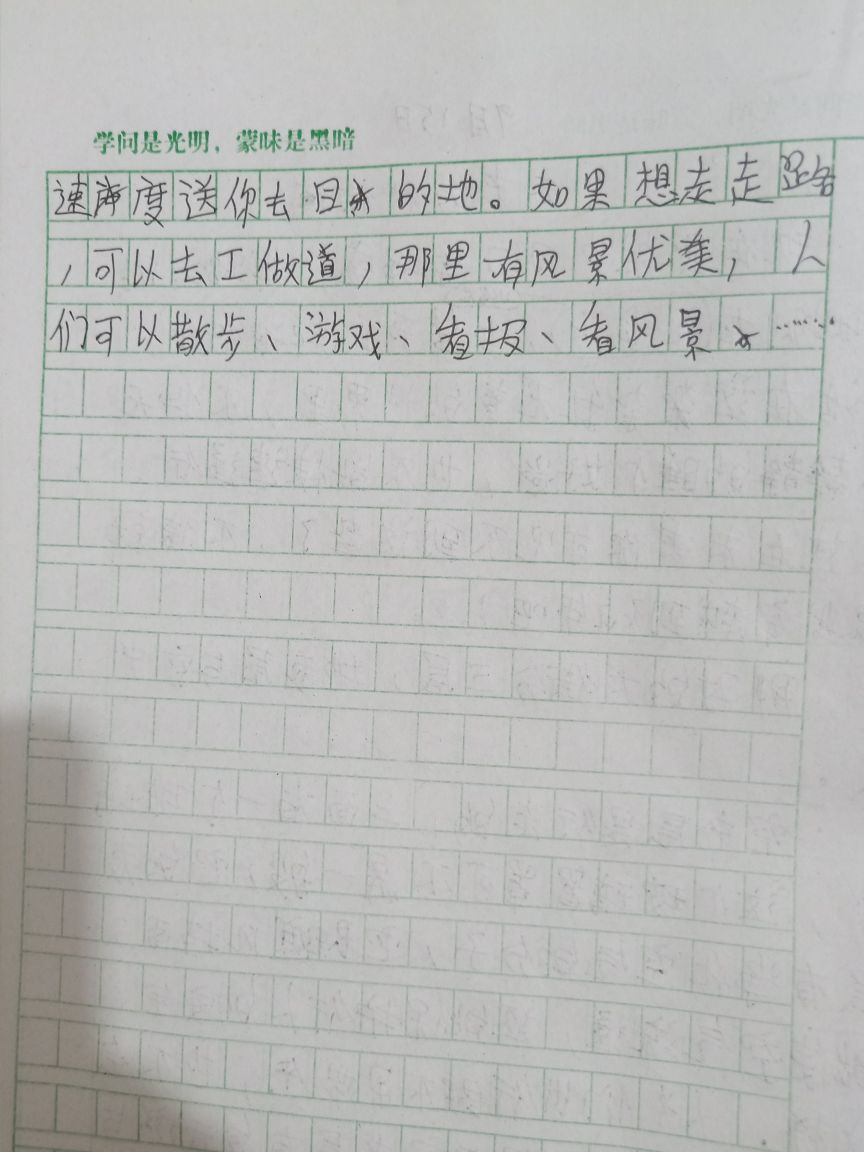 学问是光明，蒙味是黑暗
速度送你去目的地。如果想走走路
，可以去工做道，那里有风景优美，人
们可以散步、游戏、看报、看风景、……